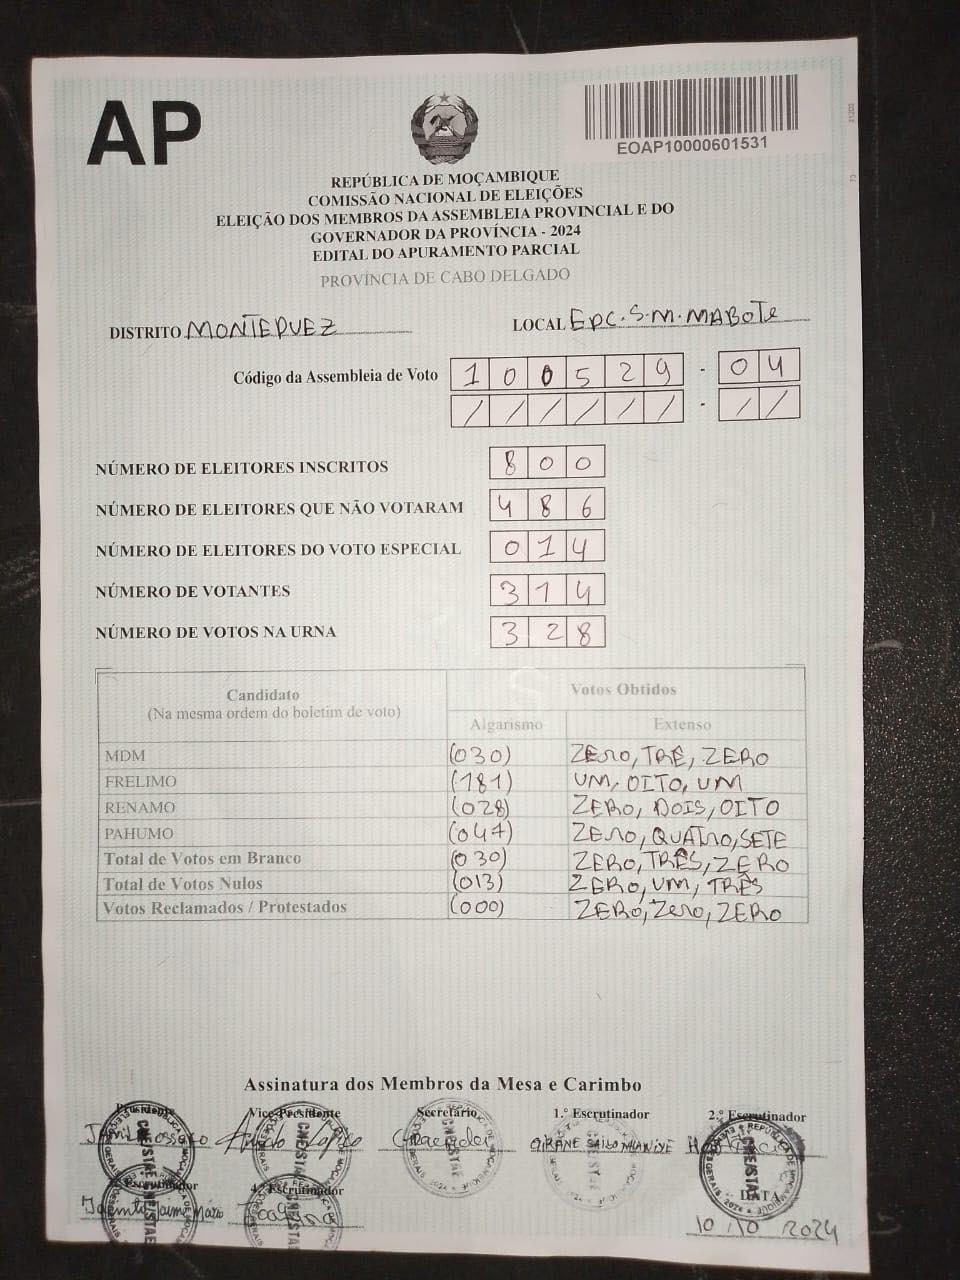 AP
EOAP10000601531
REPÚBLICA DE MOÇAMBIQUE
COMISSÃO NACIONAL DE ELEIÇÕES
ELEIÇÃO DOS MEMBROS DA ASSEMBLEIA PROVINCIAL E DO
GOVERNADOR DA PROVÍNCIA - 2024
EDITAL DO APURAMENTO PARCIAL
PROVÍNCIA DE CABO DELGADO
DISTRITO MONTEPUEZ LOCAL EPC.S.M.MABOTE
Código da Assembleia de Voto 1 0 0 5 2 9 - 0 4
/ / / / / / - / /
NÚMERO DE ELEITORES INSCRITOS 8 0 0
NÚMERO DE ELEITORES QUE NÃO VOTARAM 4 8 6
NÚMERO DE ELEITORES DO VOTO ESPECIAL 0 1 4
NÚMERO DE VOTANTES 3 1 4
NÚMERO DE VOTOS NA URNA 3 2 8
Candidato Votos Obtidos
(Na mesma ordem do boletim de voto) Algarismo Extenso
MDM (030) ZERO, TRÊ, ZERO
FRELIMO (181) UM, OITO, UM
RENAMO (028) ZERO, DOIS, OITO
PAHUMO (047) ZERO, QUATRO, SETE
Total de Votos em Branco (030) ZERO, TRÊS, ZERO
Total de Votos Nulos (013) ZERO, UM, TRÊS
Votos Reclamados / Protestados (000) ZERO, ZERO, ZERO
Assinatura dos Membros da Mesa e Carimbo
Presidente Vice-Presidente Secretário 1.º Escrutinador 2.º Escrutinador
Escrutinador 4.º Escrutinador DATA
Jaime Mário
10/10 2024